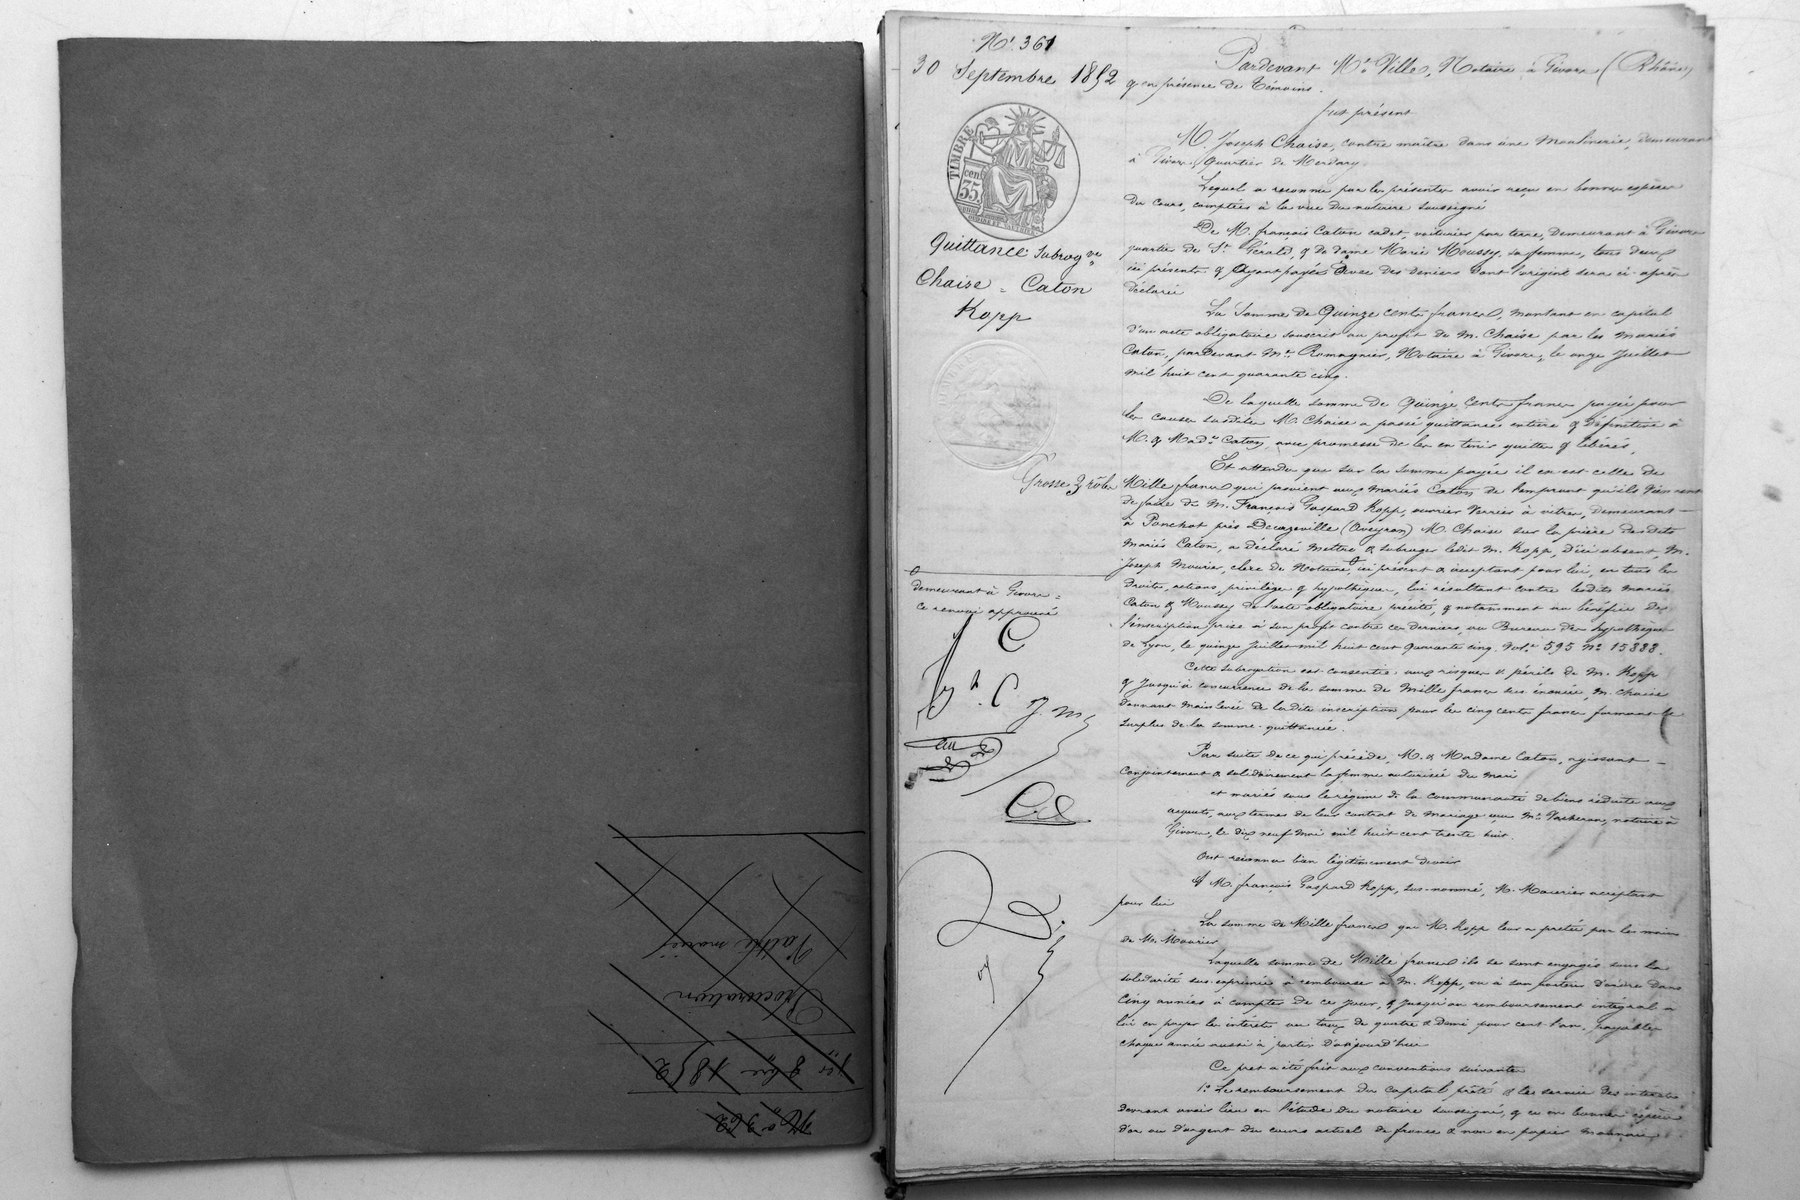 N° 361
30 Septembre 1852
TIMBRE
35 cen
Quittance Subrog.ve
Chaise = Caton
Kopp
Grosse 3 rôles
demeurant à Givors =
ce renvoi approuvé
C
C J. M
Pardevant Me Ville, Notaire à Givors (Rhône)
& en présence de Témoins.
fut présent
M. Joseph Chaise, contre maître dans une Moulinerie, demeurant
à Givors, Quartier de
Lequel a reconnu par les présentes avoir reçu en bonnes espèces
du cours, comptées à la vue du notaire soussigné
De M. françois Caton cadet, voiturier par terre, demeurant à Givors
quartier de St Gérald, & de dame Marie Moussy, sa femme, tous deux
ici présents & ayant payés avec des deniers dont l'origine sera ci-après
déclarée
La Somme de Quinze cents francs, montant en capital
d'un acte obligatoire souscrit au profit de M. Chaise par les mariés
Caton, pardevant Me Romagnier, Notaire à Givors, le onze Juillet
mil huit cent quarante cinq.
De laquelle somme de Quinze Cents francs payée pour
les causes susdites M. Chaise a passé quittance entière & définitive à
M. & Made Caton, avec promesse de les en tenir quittes & libérés.
Et attendu que sur la somme payée il en est celle de
Mille francs qui provient aux mariés Caton de l'emprunt qu'ils viennent
de faire de M. François Gaspard Kopp, ouvrier Verrier à vitres, demeurant
à Ponchot près Decazeville (Aveyron) M. Chaise sur la prière desdits
mariés Caton, a déclaré mettre & subroger ledit M. Kopp, d'ici absent, M.
Joseph Mourier, clerc de Notaire, ici présent & acceptant pour lui, en tous les
droits, actions, privilège & hypothèque, lui résultant contre lesdits mariés
Caton & Moussy de l'acte obligatoire précité, & notamment au bénéfice de
l'inscription prise à son profit contre ces derniers, au Bureau des hypothèques
de Lyon, le quinze Juillet mil huit cent quarante cinq. Vol. 595 N° 15888.
Cette subrogation est consentie aux risques & périls de M. Kopp
& jusqu'à concurrence de la somme de Mille francs sus énoncée, M. Chaise
donnant main levée de ladite inscription pour les cinq cents francs formant le
surplus de la somme quittancée.
Par suite de ce qui précède, M. & Madame Caton, agissant
conjointement & solidairement la femme autorisée du mari
et mariés sous le régime de la communauté de biens réduite aux
acquets, aux termes de leur contrat de mariage reçu Me Vacheron, notaire à
Givors, le dix neuf Mai mil huit cent trente huit.
Ont reconnu bien légitimement devoir
A M. françois Gaspard Kopp, sus-nommé, M. Mourier acceptant
pour lui
La somme de Mille francs que M. Kopp leur a prêtée par les mains
de M. Mourier
Laquelle somme de Mille francs ils se sont engagés sous la
solidarité sus-exprimée à rembourser à M. Kopp, ou à son porteur d'ordre dans
Cinq années à compter de ce jour, & jusqu'au remboursement intégral à
lui en payer les intérêts au taux de quatre & demi pour cent l'an, payables
chaque année aussi à partir d'aujourd'hui
Ce prêt a été fait aux conventions suivantes
1° Le remboursement du capital prêté & le service des intérêts
devront avoir lieu en l'étude du notaire soussigné, & en bonnes espèces
d'or ou d'argent du cours actuel de france & non en papier monnaie
N° 362
1er 8bre 1852
Procuration